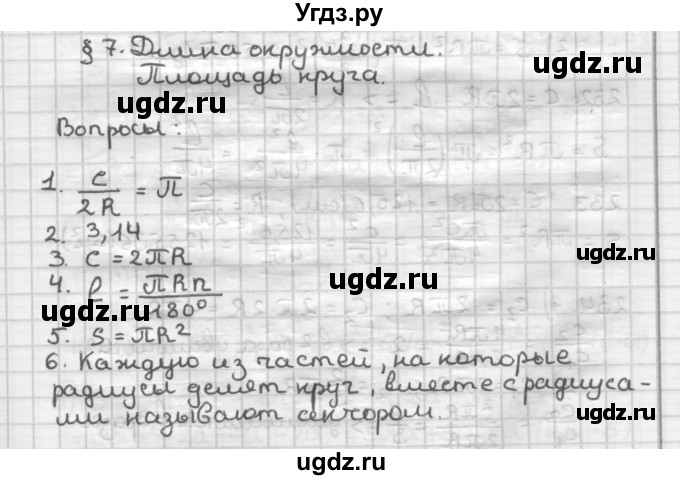 Угдз.ру
§ 7. Длина окружности.
Площадь круга.
ugdz.ru ugdz.ru
Вопросы:
ugdz.ru
1. C/2R = π
2. 3,14
3. C = 2πR
ugdz.ru ugdz.ru
4. ℓ = πRn/180°
5. S = πR²
6. Каждую из частей, на которые
радиусы делят круг, вместе с радиуса-
ми называют сектором.
ugdz.ru ugdz.ru
ugdz.ru